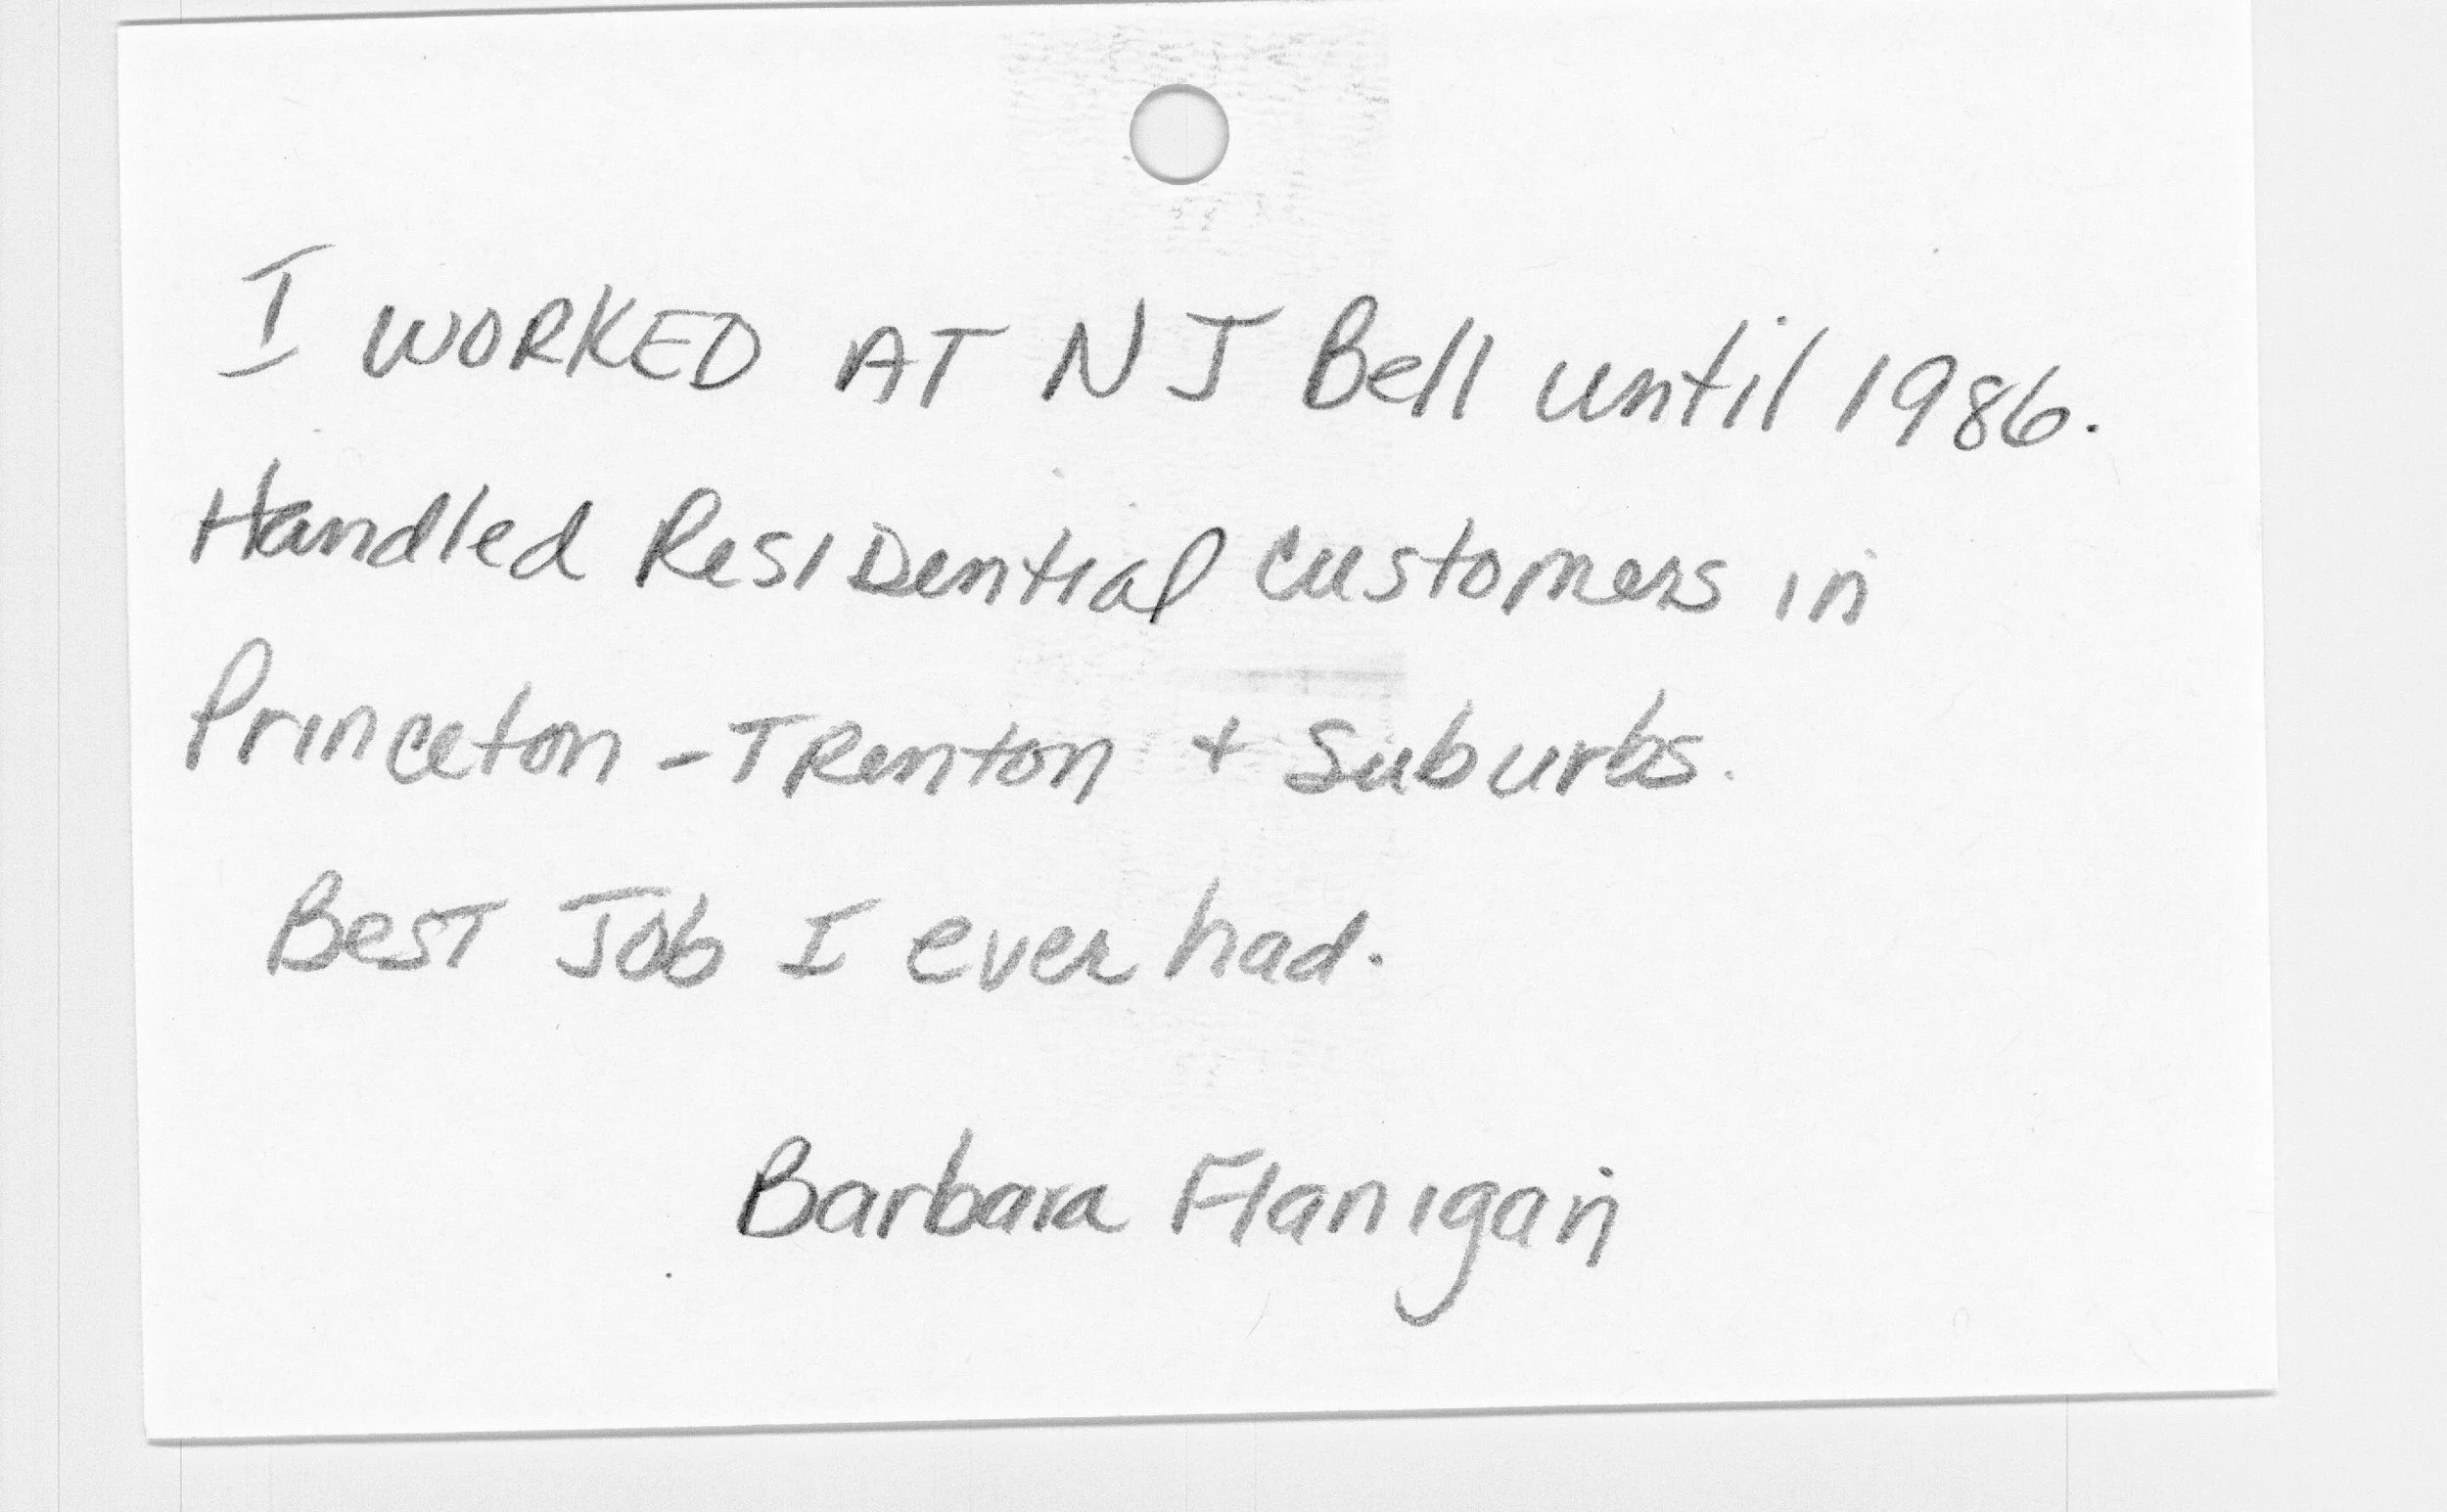 I WORKED AT NJ Bell until 1986.
Handled ResiDential customers in
Princeton - TRenton + Suburbs.
BesT Job I ever had.
Barbara Flanigan